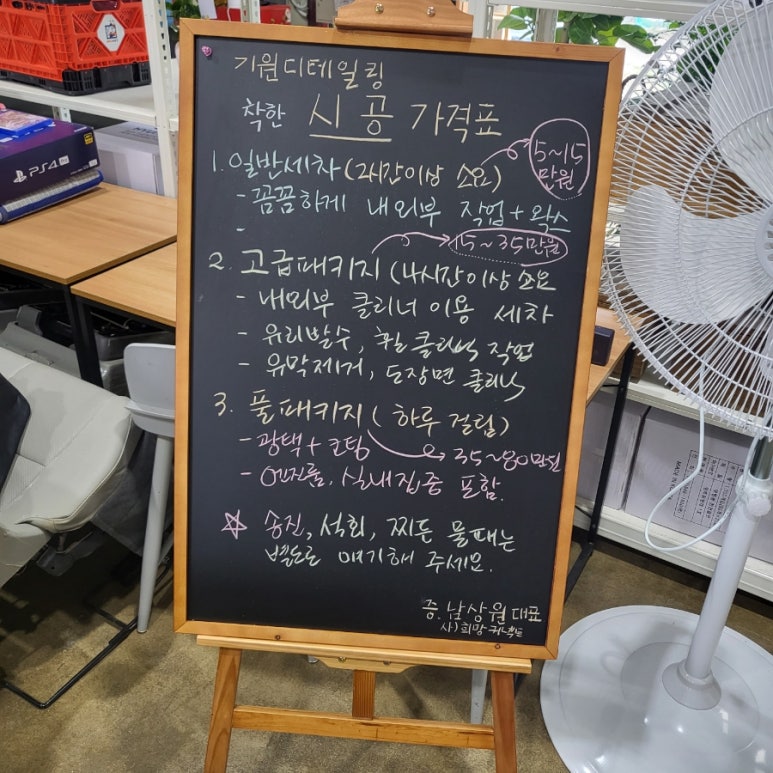 기원디테일링
착한 시공 가격표
1. 일반세차 (2시간이상 소요) 5~15만원
- 꼼꼼하게 내외부 작업 + 왁스
-
15~35만원
2. 고급패키지 (4시간이상 소요
- 내외부 클리너 이용 세차
- 유리발수, 휠클리닝 작업
- 유막제거, 도장면 클리닝
3. 풀패키지 (하루 걸림)
- 광택 + 코팅 35~80만원
- 엔진룸, 실내집중 포함.
☆ 송진, 석회, 찌든 물때는
별도로 얘기해 주세요.
증. 남상원 대표
사) 희망
PS4